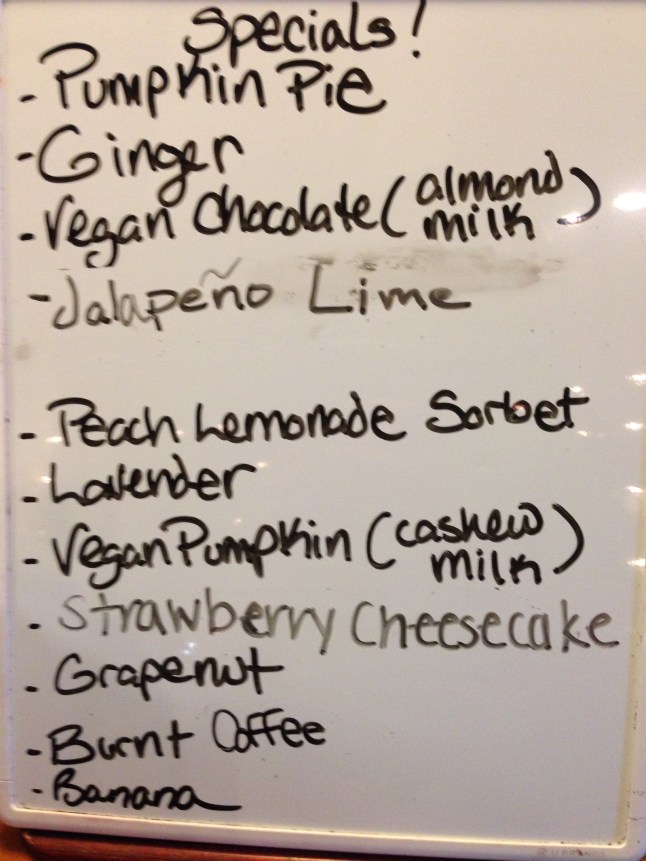 Specials!
- Pumpkin Pie
- Ginger
- Vegan Chocolate (almond milk)
- Jalapeño Lime
- Peach Lemonade Sorbet
- Lavender
- Vegan Pumpkin (cashew milk)
- Strawberry Cheesecake
- Grapenut
- Burnt Coffee
- Banana